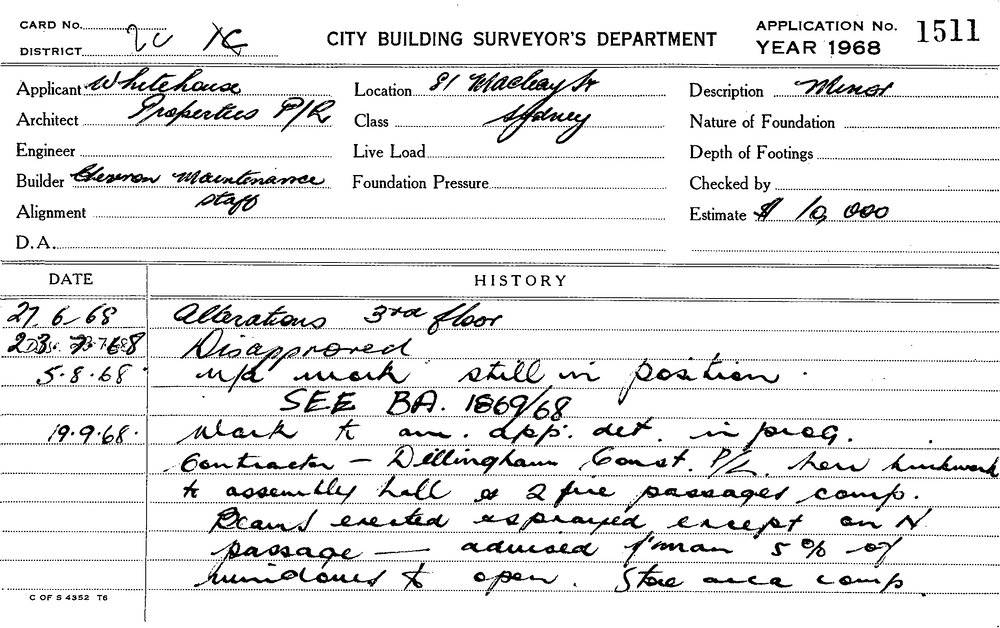 CARD No. 
DISTRICT 2C
CITY BUILDING SURVEYOR'S DEPARTMENT
APPLICATION No. 1511
YEAR 1968
Applicant Whitehouse
Architect Properties P/L
Engineer
Builder Chevron Maintenance
Staff
Alignment
D.A.
Location 81 Macleay St
Class Sydney
Live Load
Foundation Pressure
Description Minor
Nature of Foundation
Depth of Footings
Checked by
Estimate $ 10,000
DATE HISTORY
27.6.68 Alterations 3rd floor
23.7.68 Disapproved
5.8.68 work still in position.
SEE BA. 1869/68
19.9.68. Work to am. app. det. in prog.
Contractor - Dillingham Const. P/L. New brickwork
to assembly hall & 2 fire passages comp.
Beams erected & sprayed except on N.
passage — advised f'man 5% of
windows to open. Store area comp.
C OF S 4352 T6